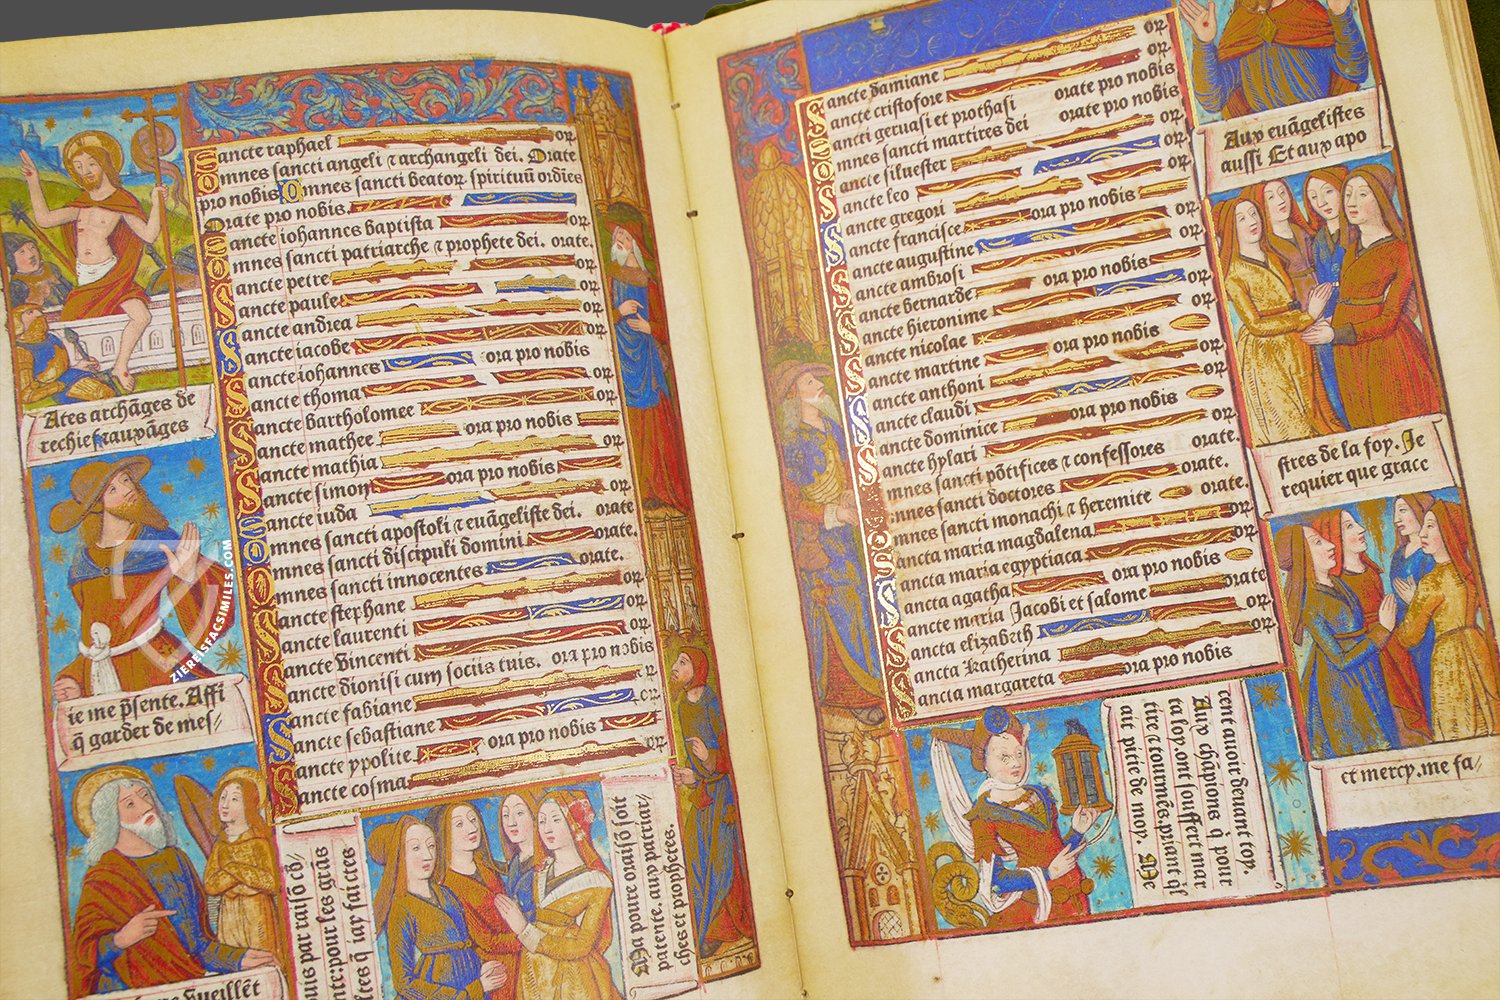 ancte raphael or̄
omnes sancti angeli ⁊ archangeli dei. Orate
pro nobis Omnes sancti beatoꝝ spirituū ordīes
Orate pro nobis.
ancte iohannes baptista or̄
omnes sancti patriarche ⁊ prophete dei. orate.
Sancte petre or̄
Sancte paule or̄
Sancte andrea or̄
Sancte iacobe or̄
Sancte iohannes ora pro nobis
Sancte thoma or̄
Sancte bartholomee or̄
Sancte mathee ora pro nobis
Sancte mathia or̄
Sancte simon ora pro nobis
Sancte iuda or̄
Omnes sancti apostoli ⁊ euāgeliste dei. orate
Omnes sancti discipuli domini orate.
Omnes sancti innocentes orate.
Sancte stephane or̄
Sancte laurenti or̄
Sancte vincenti or̄
Sancte dionisi cum sociis tuis. ora pro nobis
Sancte fabiane or̄
Sancte sebastiane or̄
Sancte ypolite ora pro nobis
Sancte cosma or̄
Ates archāges de
rechief rauxāges
ie me p̄sente. Affi
q̄ garder de mes/
vueillēt
uis par raisō cō/
nte: pour les grās
lces q̄ iay faictes
Ma poure oraisō soit
patente. aux patriar/
ches et prophetes.
ZIEREISFACSIMILES.COM
Sancte damiane or̄
Sancte cristofore or̄
Sancti geruasi et prothasi orate pro nobis
Omnes sancti martires dei orate pro nobis
Sancte siluester or̄
Sancte leo or̄
Sancte gregori or̄
Sancte francisce ora pro nobis
Sancte augustine or̄
Sancte ambrosi or̄
Sancte bernarde ora pro nobis
Sancte hieronime or̄
Sancte nicolae ora pro nobis
Sancte martine ora pro nobis
Sancte anthoni or̄
Sancte claudi or̄
Sancte dominice ora pro nobis
Sancte hylari or̄
Omnes sancti pōtifices ⁊ confessores orate.
Omnes sancti doctores orate.
Omnes sancti monachi ⁊ heremite orate.
Sancta maria magdalena or̄
Sancta maria egyptiaca or̄
Sancta agatha ora pro nobis
Sancte maria Jacobi et salome orate
Sancta elizabeth or̄
Sancta katherina or̄
Sancta margareta ora pro nobis
Aux euāgelistes
aussi Et aux apo
stres de la foy. Je
requier que grace
et mercy. me fa/
cent auoir deuant toy.
Aux chāpions q̄ pour
ta loy. ont souffert mar
tire ⁊ tourmēs. priant q̄l
ait pitie de moy. Me